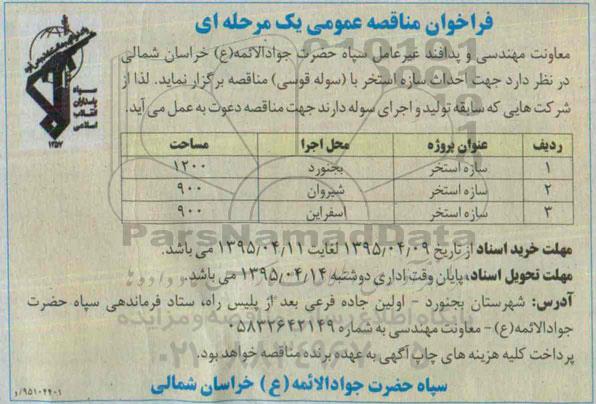 فراخوان مناقصه عمومی یک مرحله ای
معاونت مهندسی و پدافند غیرعامل سپاه حضرت جوادالائمه(ع) خراسان شمالی
در نظر دارد جهت احداث سازه استخر با (سوله قوسی) مناقصه برگزار نماید. لذا از
شرکت هایی که سابقه تولید و اجرای سوله دارند جهت مناقصه دعوت به عمل می آید.
ردیف عنوان پروژه محل اجرا مساحت
۱ سازه استخر بجنورد ۱۲۰۰
۲ سازه استخر شیروان ۹۰۰
۳ سازه استخر اسفراین ۹۰۰
مهلت خرید اسناد از تاریخ ۱۳۹۵/۰۴/۰۹ لغایت ۱۳۹۵/۰۴/۱۱ می باشد.
مهلت تحویل اسناد، پایان وقت اداری دوشنبه ۱۳۹۵/۰۴/۱۴ می باشد.
آدرس: شهرستان بجنورد - اولین جاده فرعی بعد از پلیس راه، ستاد فرماندهی سپاه حضرت
جوادالائمه(ع) - معاونت مهندسی به شماره ۰۵۸۳۲۶۴۲۱۴۹
پرداخت کلیه هزینه های چاپ آگهی به عهده برنده مناقصه خواهد بود.
سپاه حضرت جوادالائمه (ع) خراسان شمالی
۹۵۱۰۲۴۰۱/و
ParsNamadData
پایگاه اطلاع رسانی مناقصه و مزایده